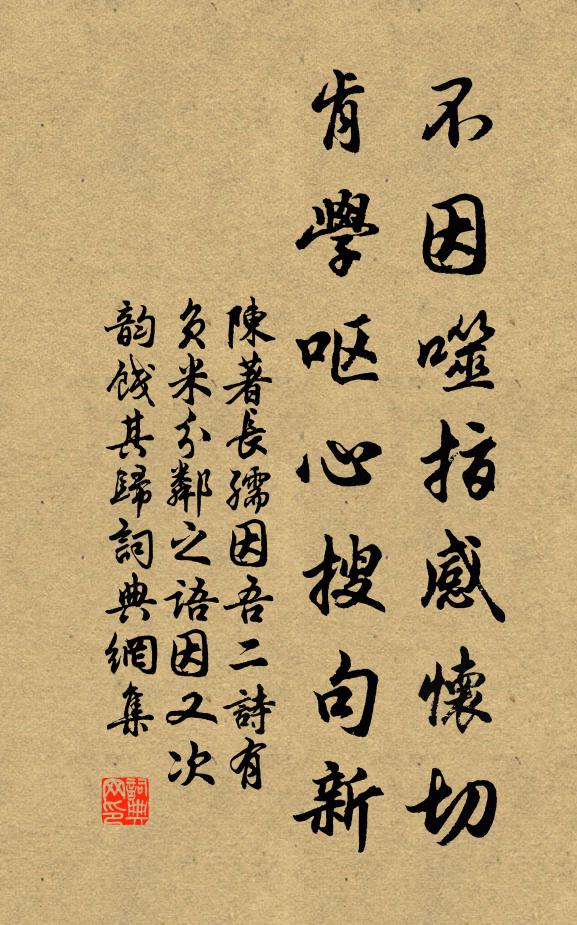 不因噬指感懷切
肯學呕心搜句新
陳著長孺因吾二詩有
負米分鄰之語因又次
韵餞其歸詞典網集
詞典网印